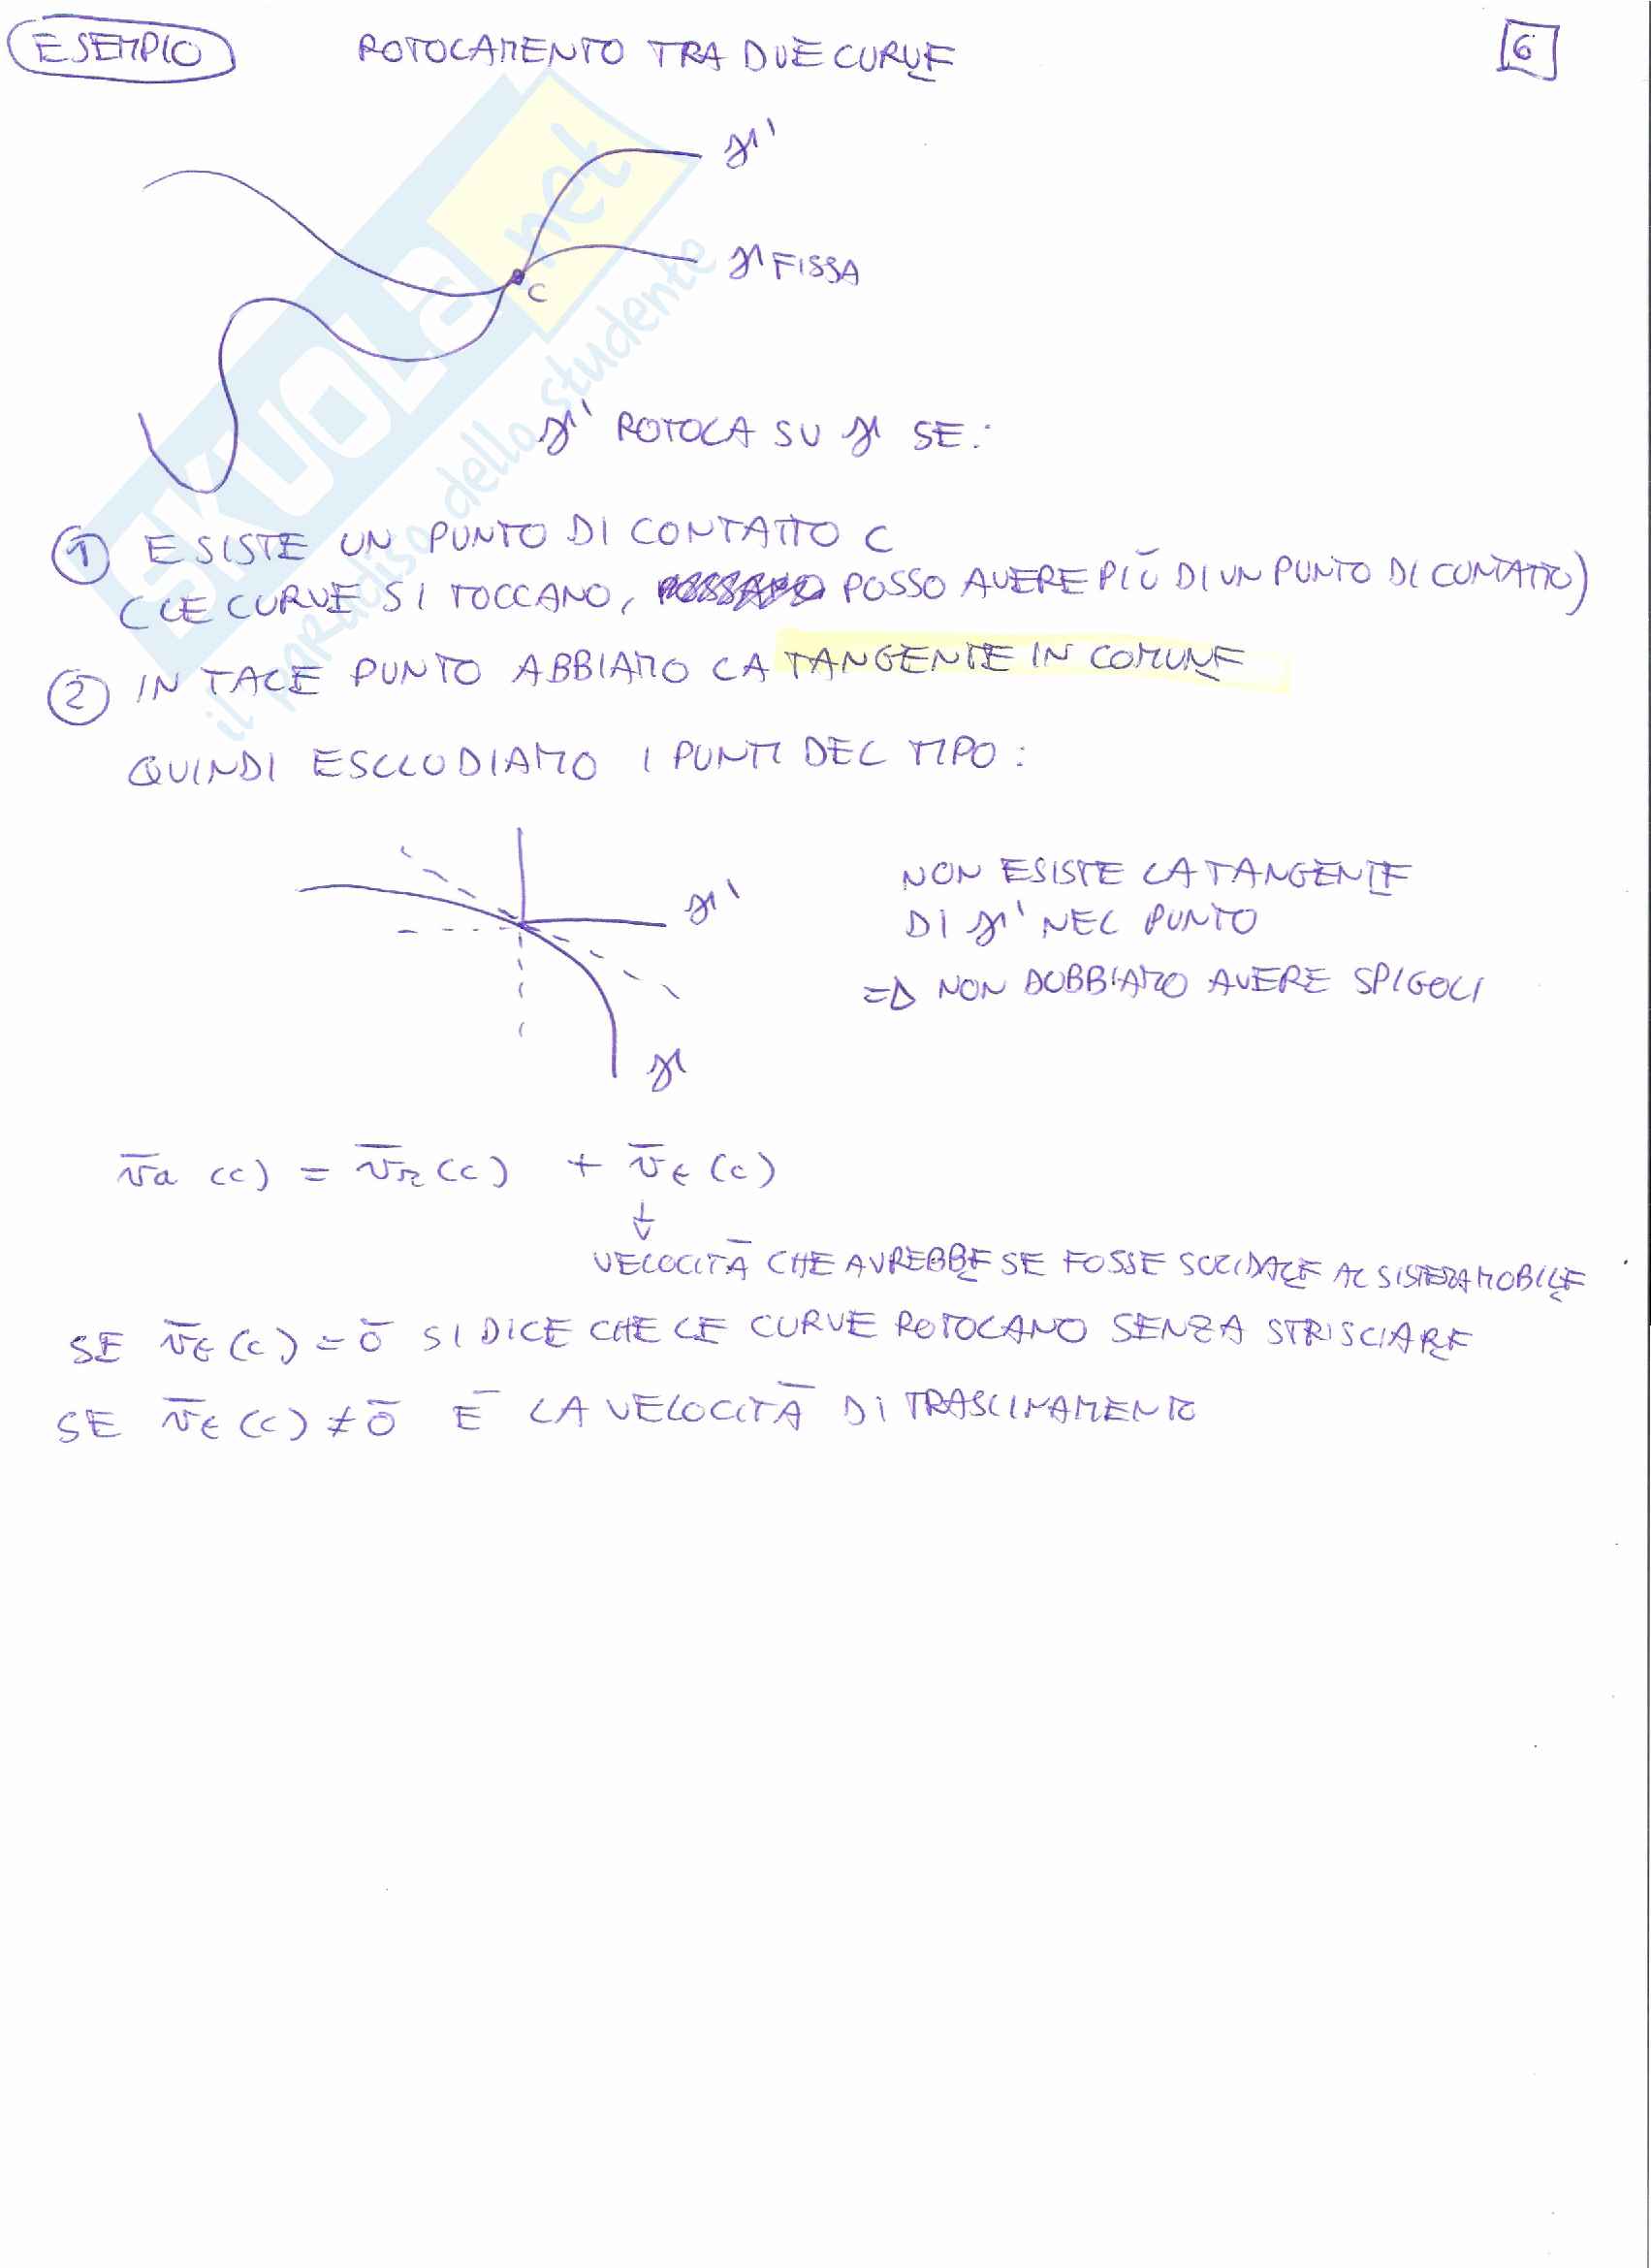 ESEMPIO ROTOLAMENTO TRA DUE CURVE 6
γ'
γ FISSA
C
γ' ROTOLA SU γ SE:
① ESISTE UN PUNTO DI CONTATTO C
(LE CURVE SI TOCCANO, POSSO AVERE PIÙ DI UN PUNTO DI CONTATTO)
② IN TALE PUNTO ABBIAMO LA TANGENTE IN COMUNE
QUINDI ESCLUDIAMO I PUNTI DEL TIPO:
γ'
NON ESISTE LA TANGENTE
DI γ' NEL PUNTO
=> NON DOBBIAMO AVERE SPIGOLI
γ
v̄a (c) = v̄r (c) + v̄t (c)
↓
VELOCITÀ CHE AVREBBE SE FOSSE SOLIDALE AL SISTEMA MOBILE
SE v̄t (c) = ō SI DICE CHE LE CURVE ROTOLANO SENZA STRISCIARE
SE v̄t (c) ≠ ō È LA VELOCITÀ DI TRASCINAMENTO
SKUOLA.net
il paradiso dello studente